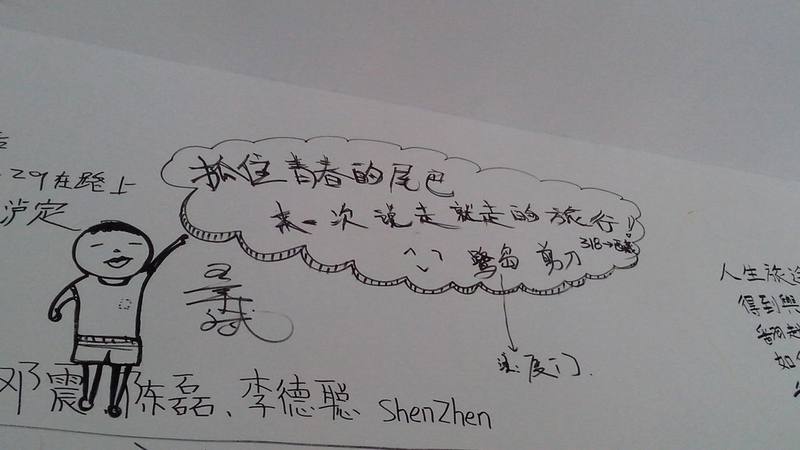 29在路上
泸定
抓住青春的尾巴
来一次说走就走的旅行!
318→西藏
鹭岛 剪刀
是厦门.
邓震、陈磊、李德聪 ShenZhen
人生旅途
得到與
翻越
如